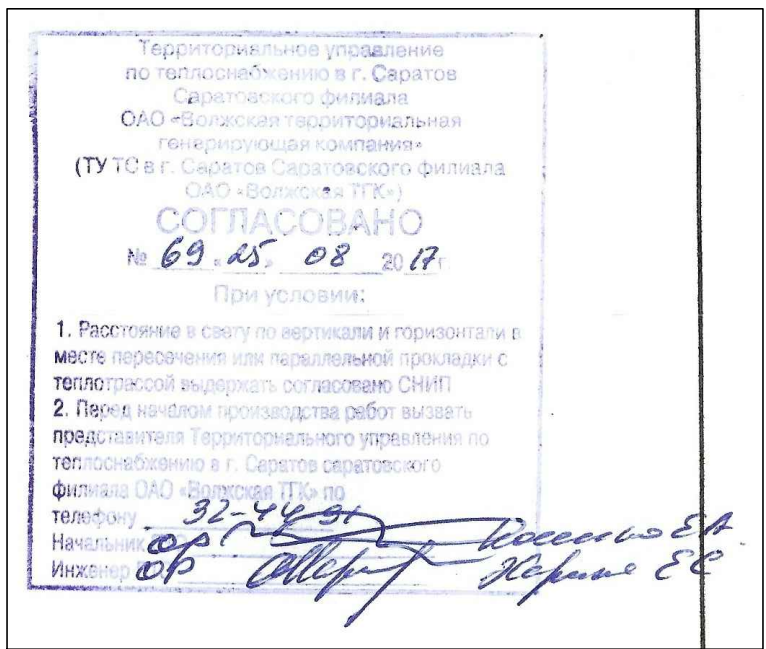 Территориальное управление
по теплоснабжению в г. Саратов
Саратовского филиала
ОАО «Волжская территориальная
генерирующая компания»
(ТУ ТС в г. Саратов Саратовского филиала
ОАО «Волжская ТГК»)
СОГЛАСОВАНО
№ 69 «25» 08 2017г.
При условии:
1. Расстояние в свету по вертикали и горизонтали в
месте пересечения или параллельной прокладки с
теплотрассой выдержать согласовано СНИП
2. Перед началом производства работ вызвать
представителя Территориального управления по
теплоснабжению в г. Саратов саратовского
филиала ОАО «Волжская ТГК» по
телефону 32-44-91
Начальник ОР ЕА
Инженер ОР ЕС